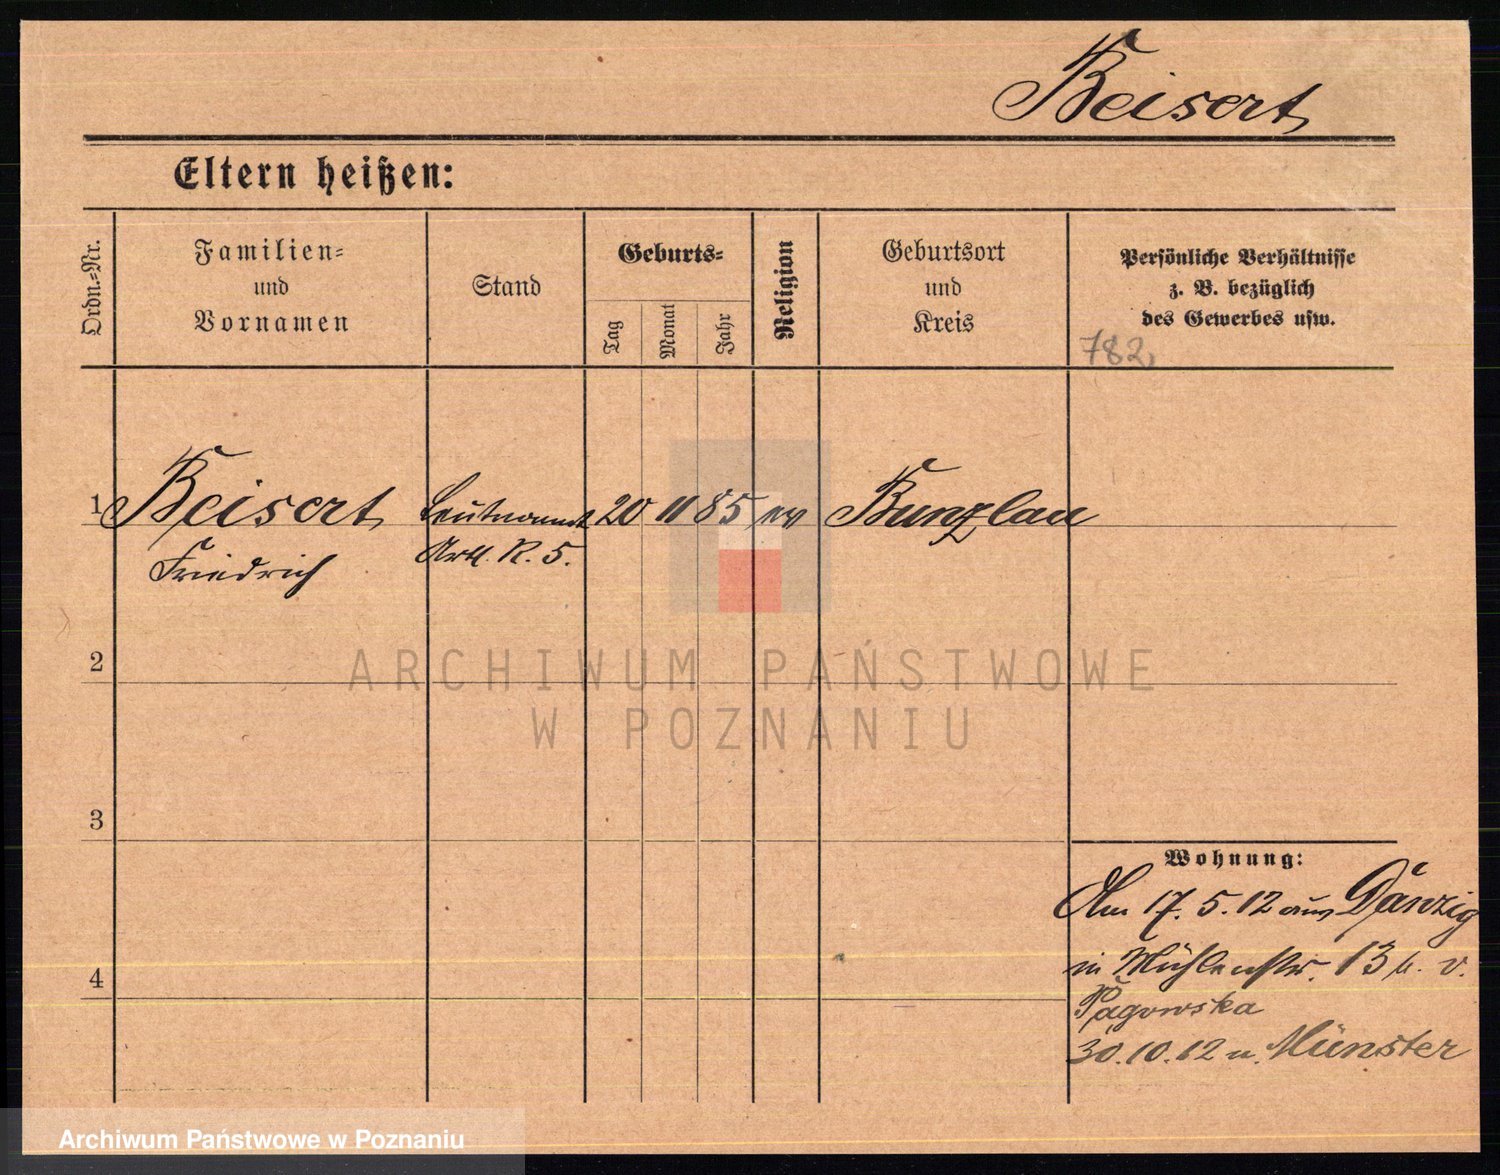 Beisert
Eltern heißen:
Ordn.=Nr.
Familien=
und
Vornamen
Stand
Geburts=
Tag
Monat
Jahr
Religion
Geburtsort
und
Kreis
Persönliche Verhältnisse
z. B. bezüglich
des Gewerbes usw.
782
1 Beisert Leutnant 20 11 85 ev Bunzlau
Friedrich Artl. R. 5.
2
ARCHIWUM PAŃSTWOWE
W POZNANIU
3
Wohnung:
Am 17. 5. 12 aus Danzig
in Mühlenstr. 13 b. v.
4
Pągowska
30.10.12 n. Münster
Archiwum Państwowe w Poznaniu